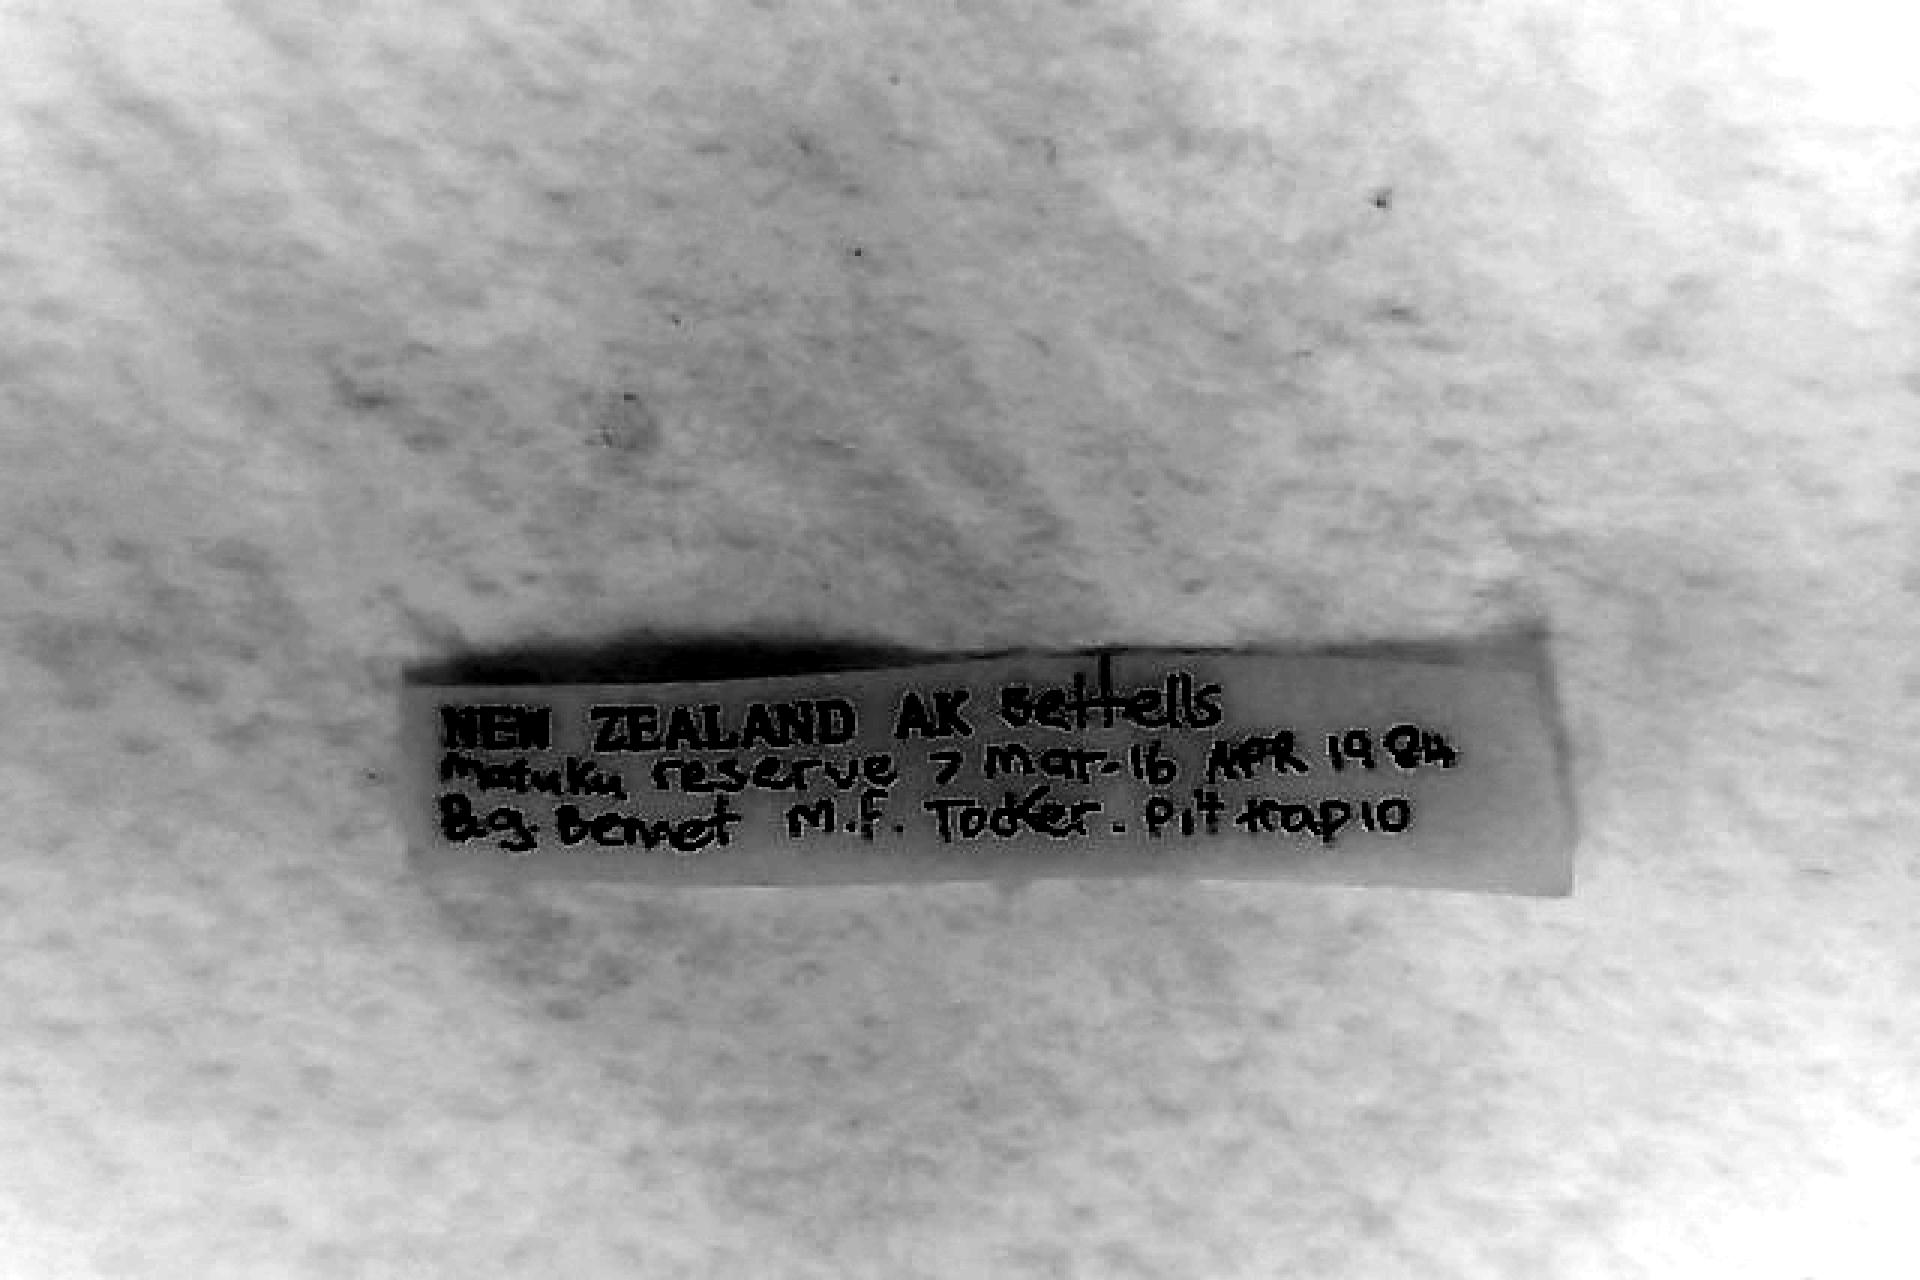 NEW ZEALAND AK Bethells
Matuku reserve 7 Mar-16 APR 1984
B.g. Bennet M.F. Tocker. Pit trap 10